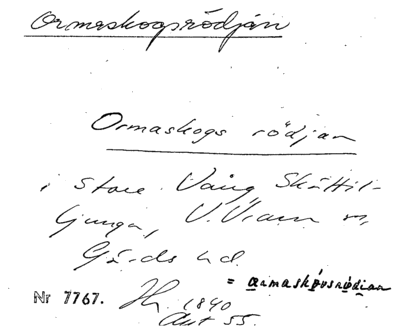 Ormaskogsrödjan
Ormaskogs rödjan
i Store Vång Skättil-
ljunga, V. Vram sn,
Gärds hd.
= armaskousrödjan
Nr 7767.
1840
Akt 55.